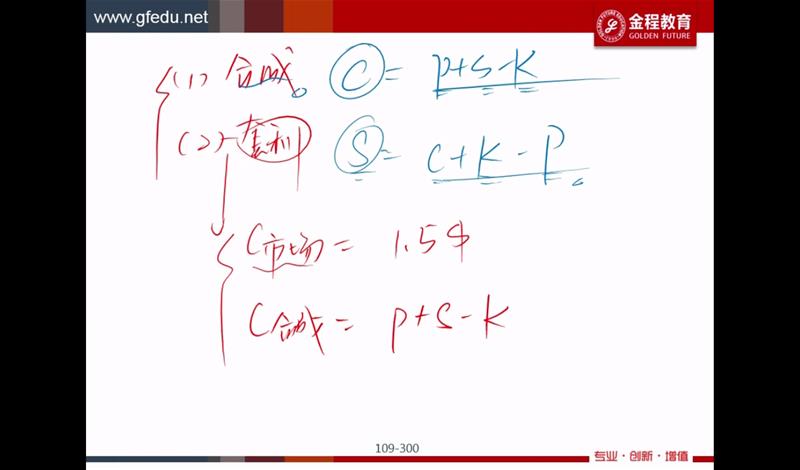 www.gfedu.net
金程教育
GOLDEN FUTURE
(1) 合成 C = P+S-K
(2) 套利 S = C+K-P
C市场 = 1.5$
C合成 = P+S-K
109-300
专业·创新·增值